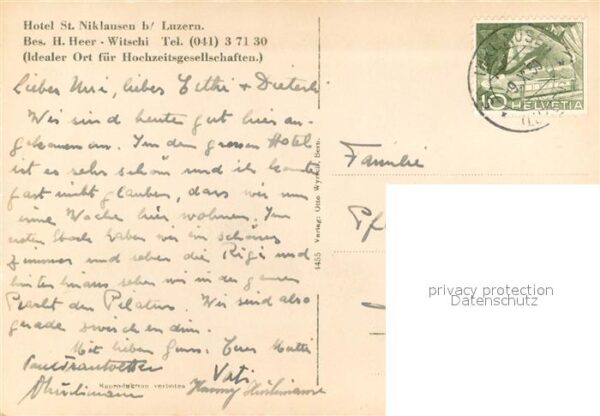 Hotel St. Niklausen b/ Luzern.
Bes. H. Heer - Witschi Tel. (041) 3 71 30
(Idealer Ort für Hochzeitsgesellschaften.)
Lieber Urri, lieber + Dieterli
Wir sind heute gut hier an-
gekommen. In dem grossen Hotel
ist es sehr schön und ich konnte
fast nicht glauben, dass wir nun
eine Woche hier wohnen. Im
ersten Stock haben wir ein schönes
Zimmer und sehen die Rigi und
hinten hinaus sehen wir in der ganzen
Pracht den Pilatus. Wir sind also
gerade zwischen drin.
Mit lieben Euer Mutti
Vati
Reproduktion verboten
Hanny
1455 Verlag: Otto Wyrsch, Bern.
10 HELVETIA
Familie
Pf
privacy protection
Datenschutz